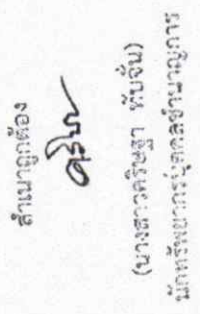 สำเนาถูกต้อง
(นางสาวศริษฐา ทับจั่น)
นักทรัพยากรบุคคลชำนาญการ